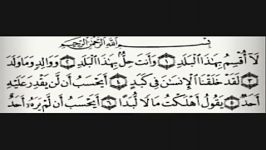 بِسْمِ ٱللَّهِ ٱلرَّحْمَٰنِ ٱلرَّحِيمِ
لَآ أُقْسِمُ بِهَٰذَا ٱلْبَلَدِ ١ وَأَنتَ حِلٌّۢ بِهَٰذَا ٱلْبَلَدِ ٢ وَوَالِدٍ وَمَا وَلَدَ
٣ لَقَدْ خَلَقْنَا ٱلْإِنسَٰنَ فِى كَبَدٍ ٤ أَيَحْسَبُ أَن لَّن يَقْدِرَ عَلَيْهِ
أَحَدٌ ٥ يَقُولُ أَهْلَكْتُ مَالًا لُّبَدًا ٦ أَيَحْسَبُ أَن لَّمْ يَرَهُۥٓ أَحَدٌ